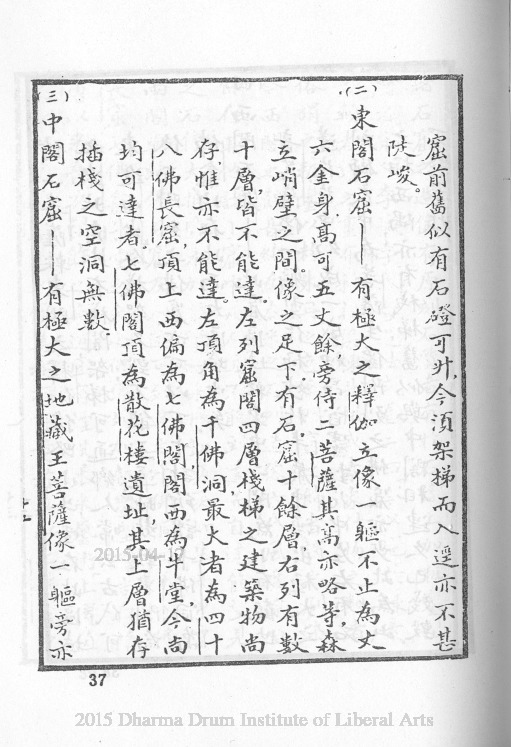 窟前舊似有石磴可升，今須架梯而入，逕亦不甚
陡峻。
(二) 東閣石窟——有極大之釋伽立像一軀，不止為丈
六金身，高可五丈餘，旁侍二菩薩，其高亦略等，森
立峭壁之間。像之足下，有石窟十餘層，右列有數
十層，皆不能達。左列窟閣四層，棧梯之建築物尚
存，惟亦不能達。左頂角為千佛洞，最大者為四十
八佛長窟，頂上西偏為七佛閣，閣西為牛堂，今尚
均可達者。七佛閣頂為散花樓遺址，其上層猶存
插棧之空洞無數。
(三) 中閣石窟——有極大之地藏王菩薩像一軀，旁亦
十七
37
2015-04-12
2015 Dharma Drum Institute of Liberal Arts